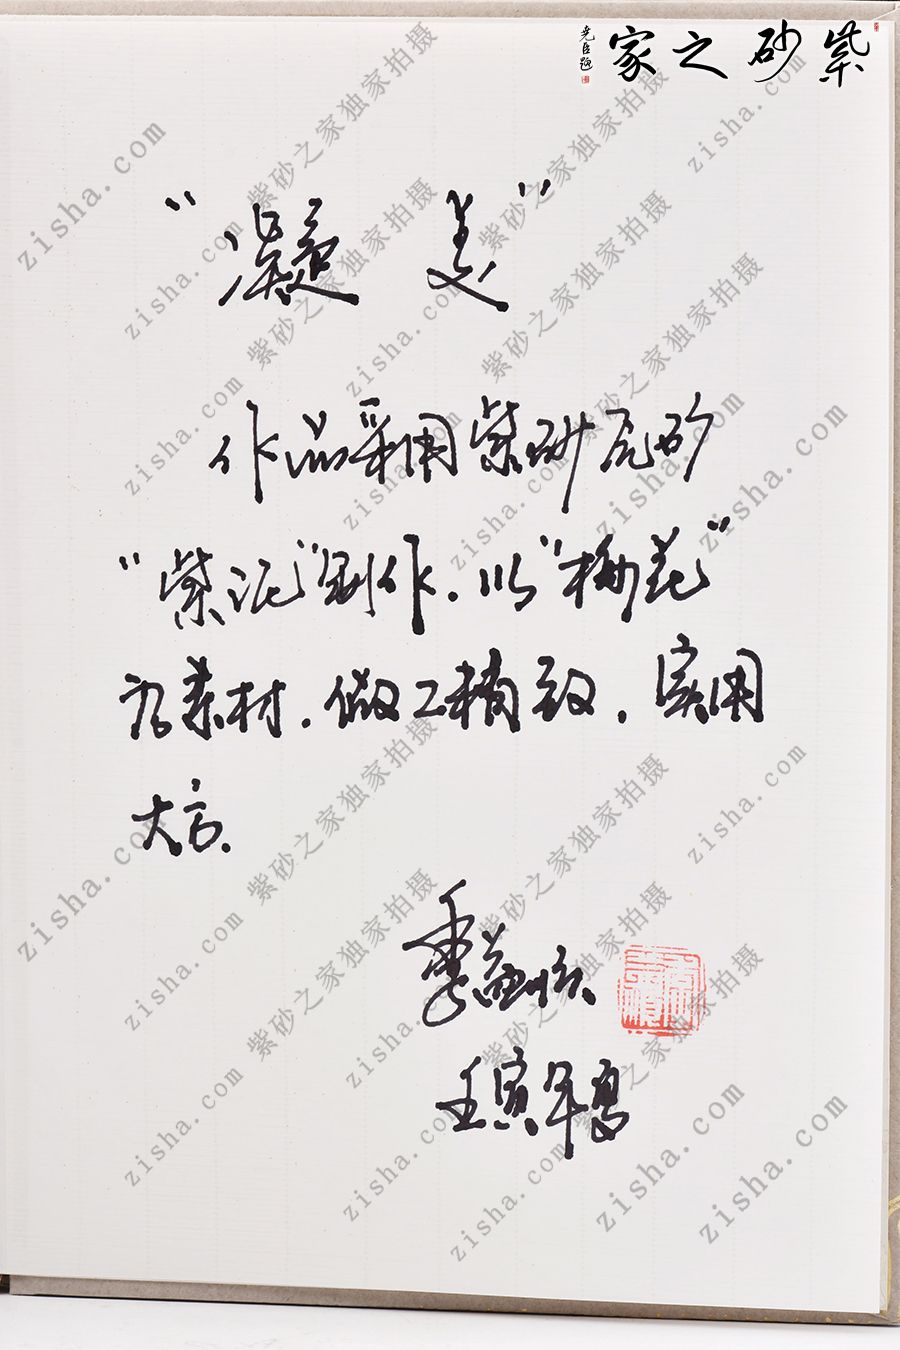 紫砂之家
尧臣题
"凝 美"
作品采用紫砂原矿
"紫泥"制作. 以"梅花"
为素材. 做工精致. 实用
大方.
季益顺
壬寅年夏
紫砂之家独家拍摄
zisha.com